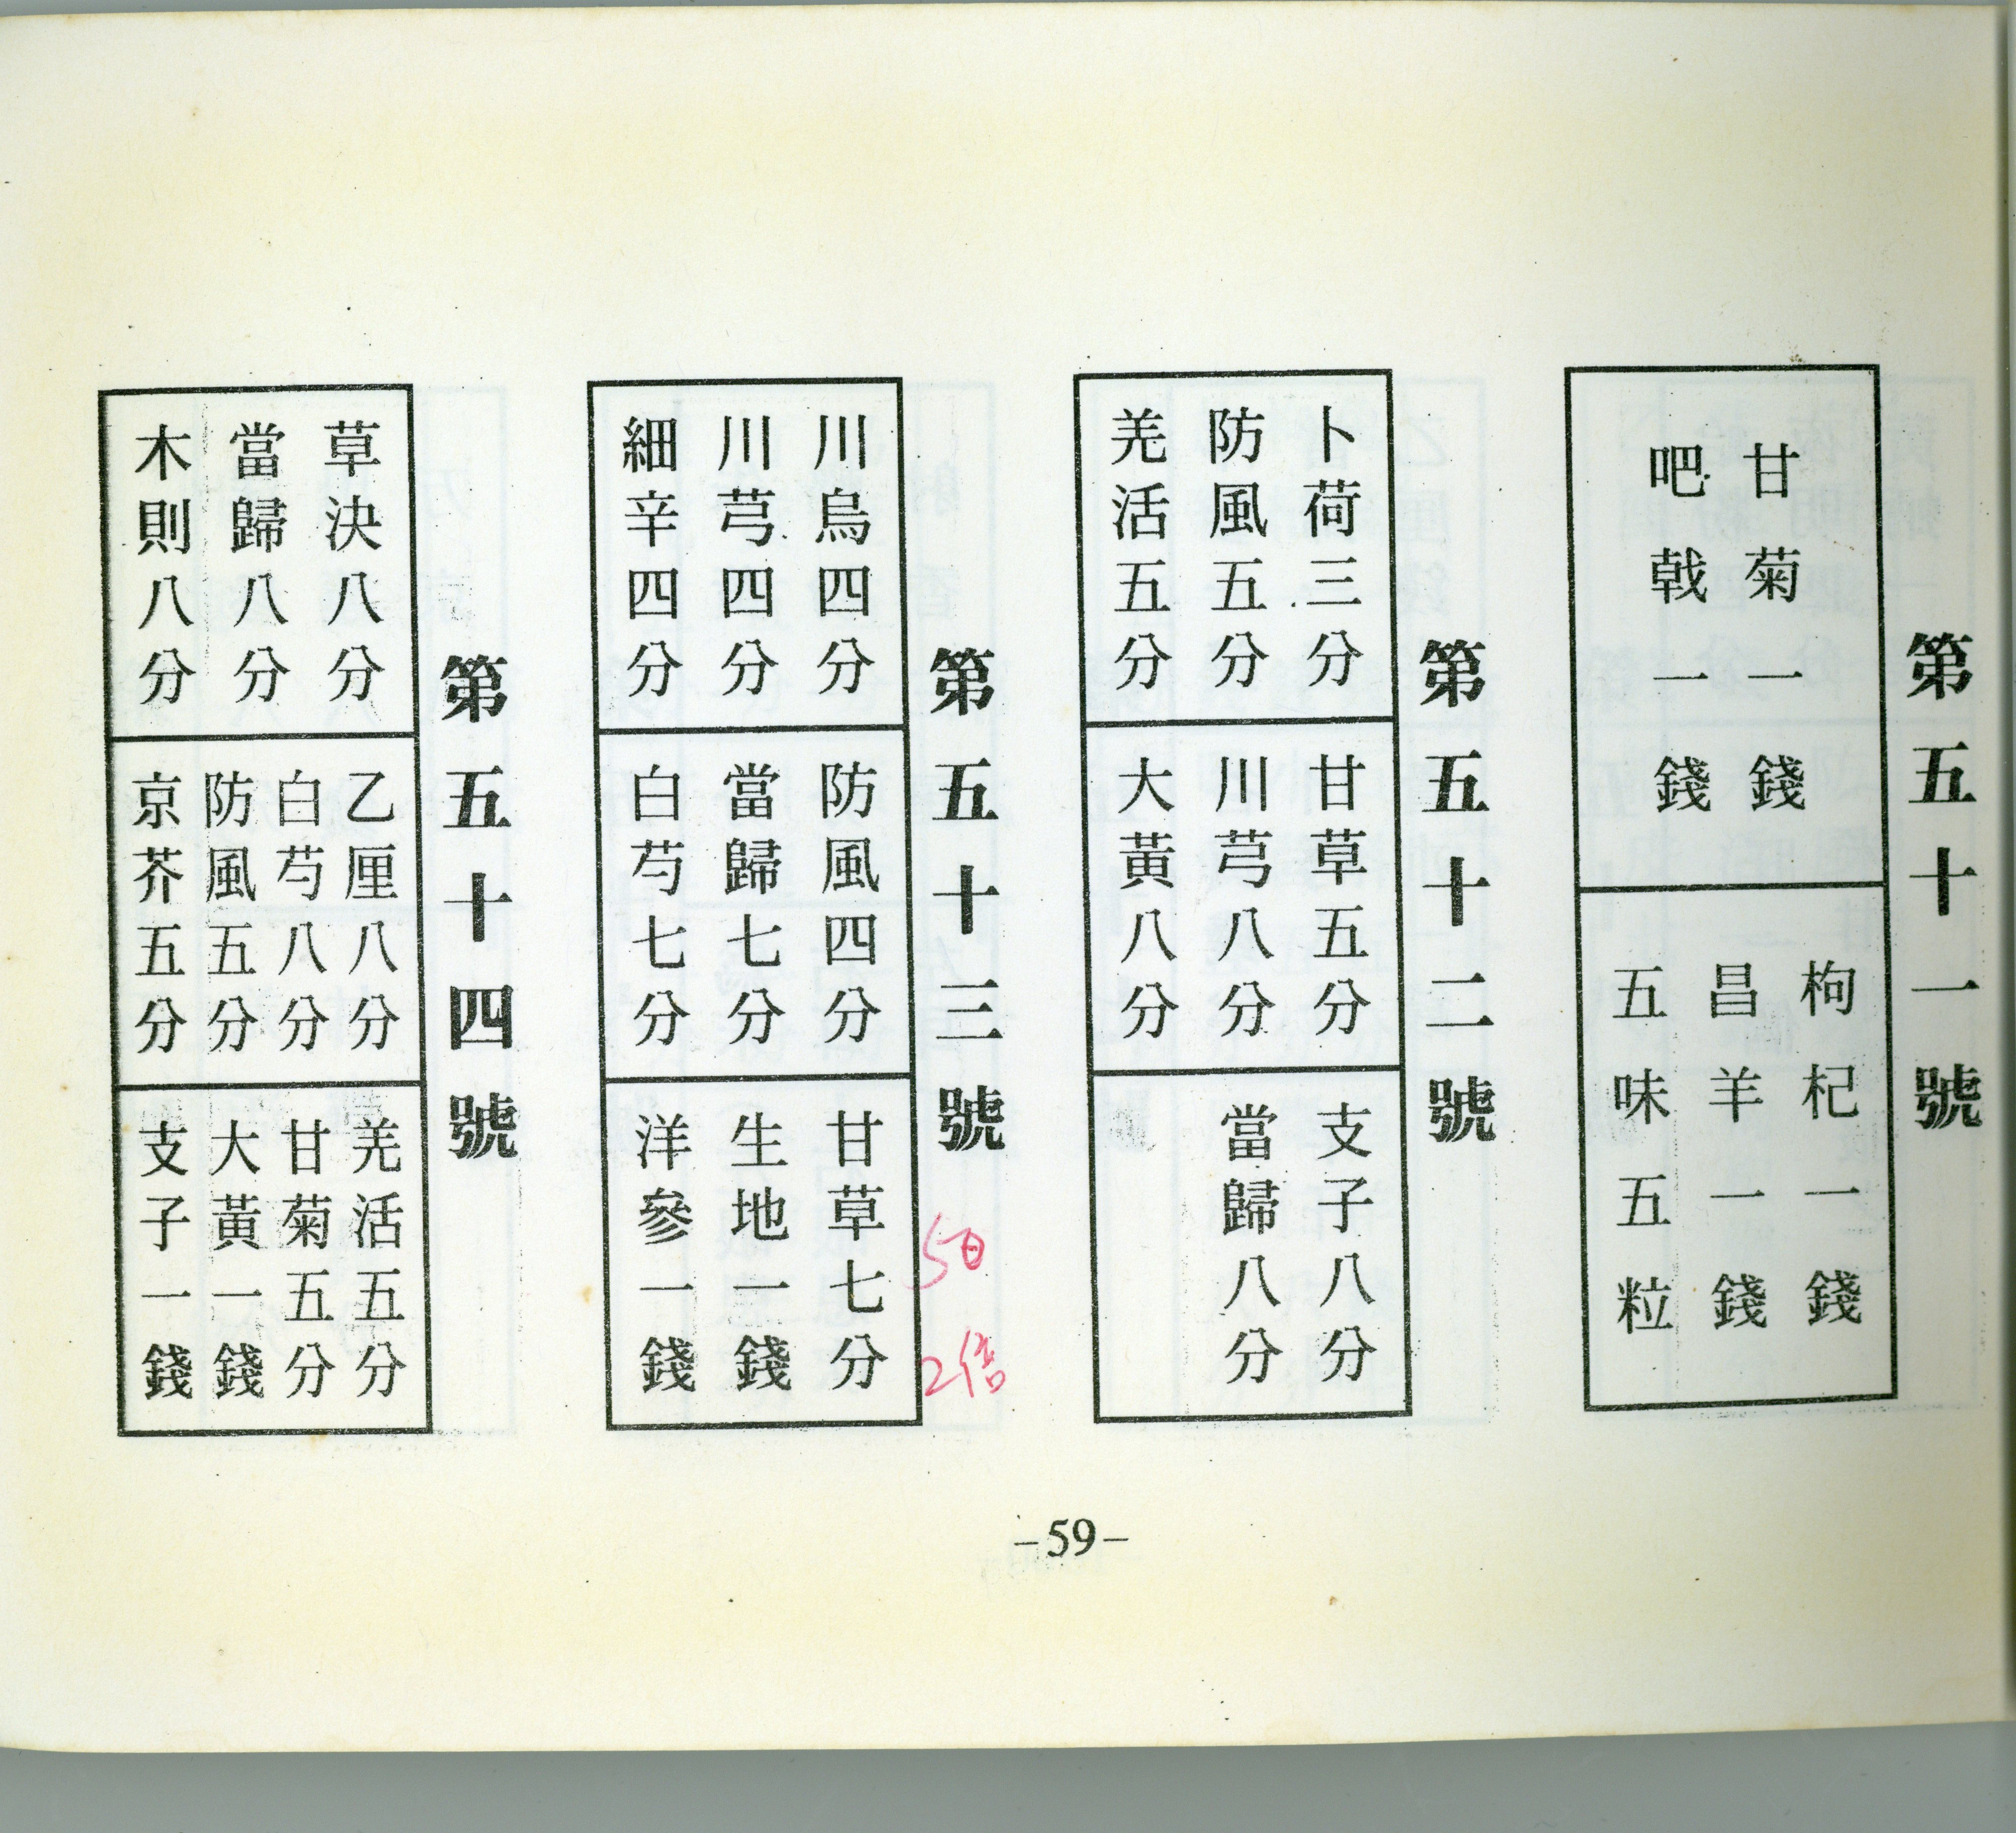 第五十一號
甘菊一錢
吧戟一錢
枸杞一錢
昌羊一錢
五味五粒
第五十二號
卜荷三分
防風五分
羌活五分
甘草五分
川芎八分
大黃八分
支子八分
當歸八分
第五十三號
5日
2倍
川烏四分
川芎四分
細辛四分
防風四分
當歸七分
白芍七分
甘草七分
生地一錢
洋參一錢
第五十四號
草決八分
當歸八分
木則八分
乙厘八分
白芍八分
防風五分
京芥五分
羌活五分
甘菊五分
大黃一錢
支子一錢
–59–